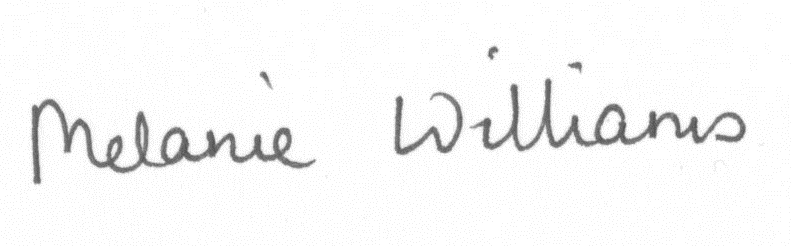 Melanie Williams